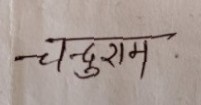 चन्दुराम